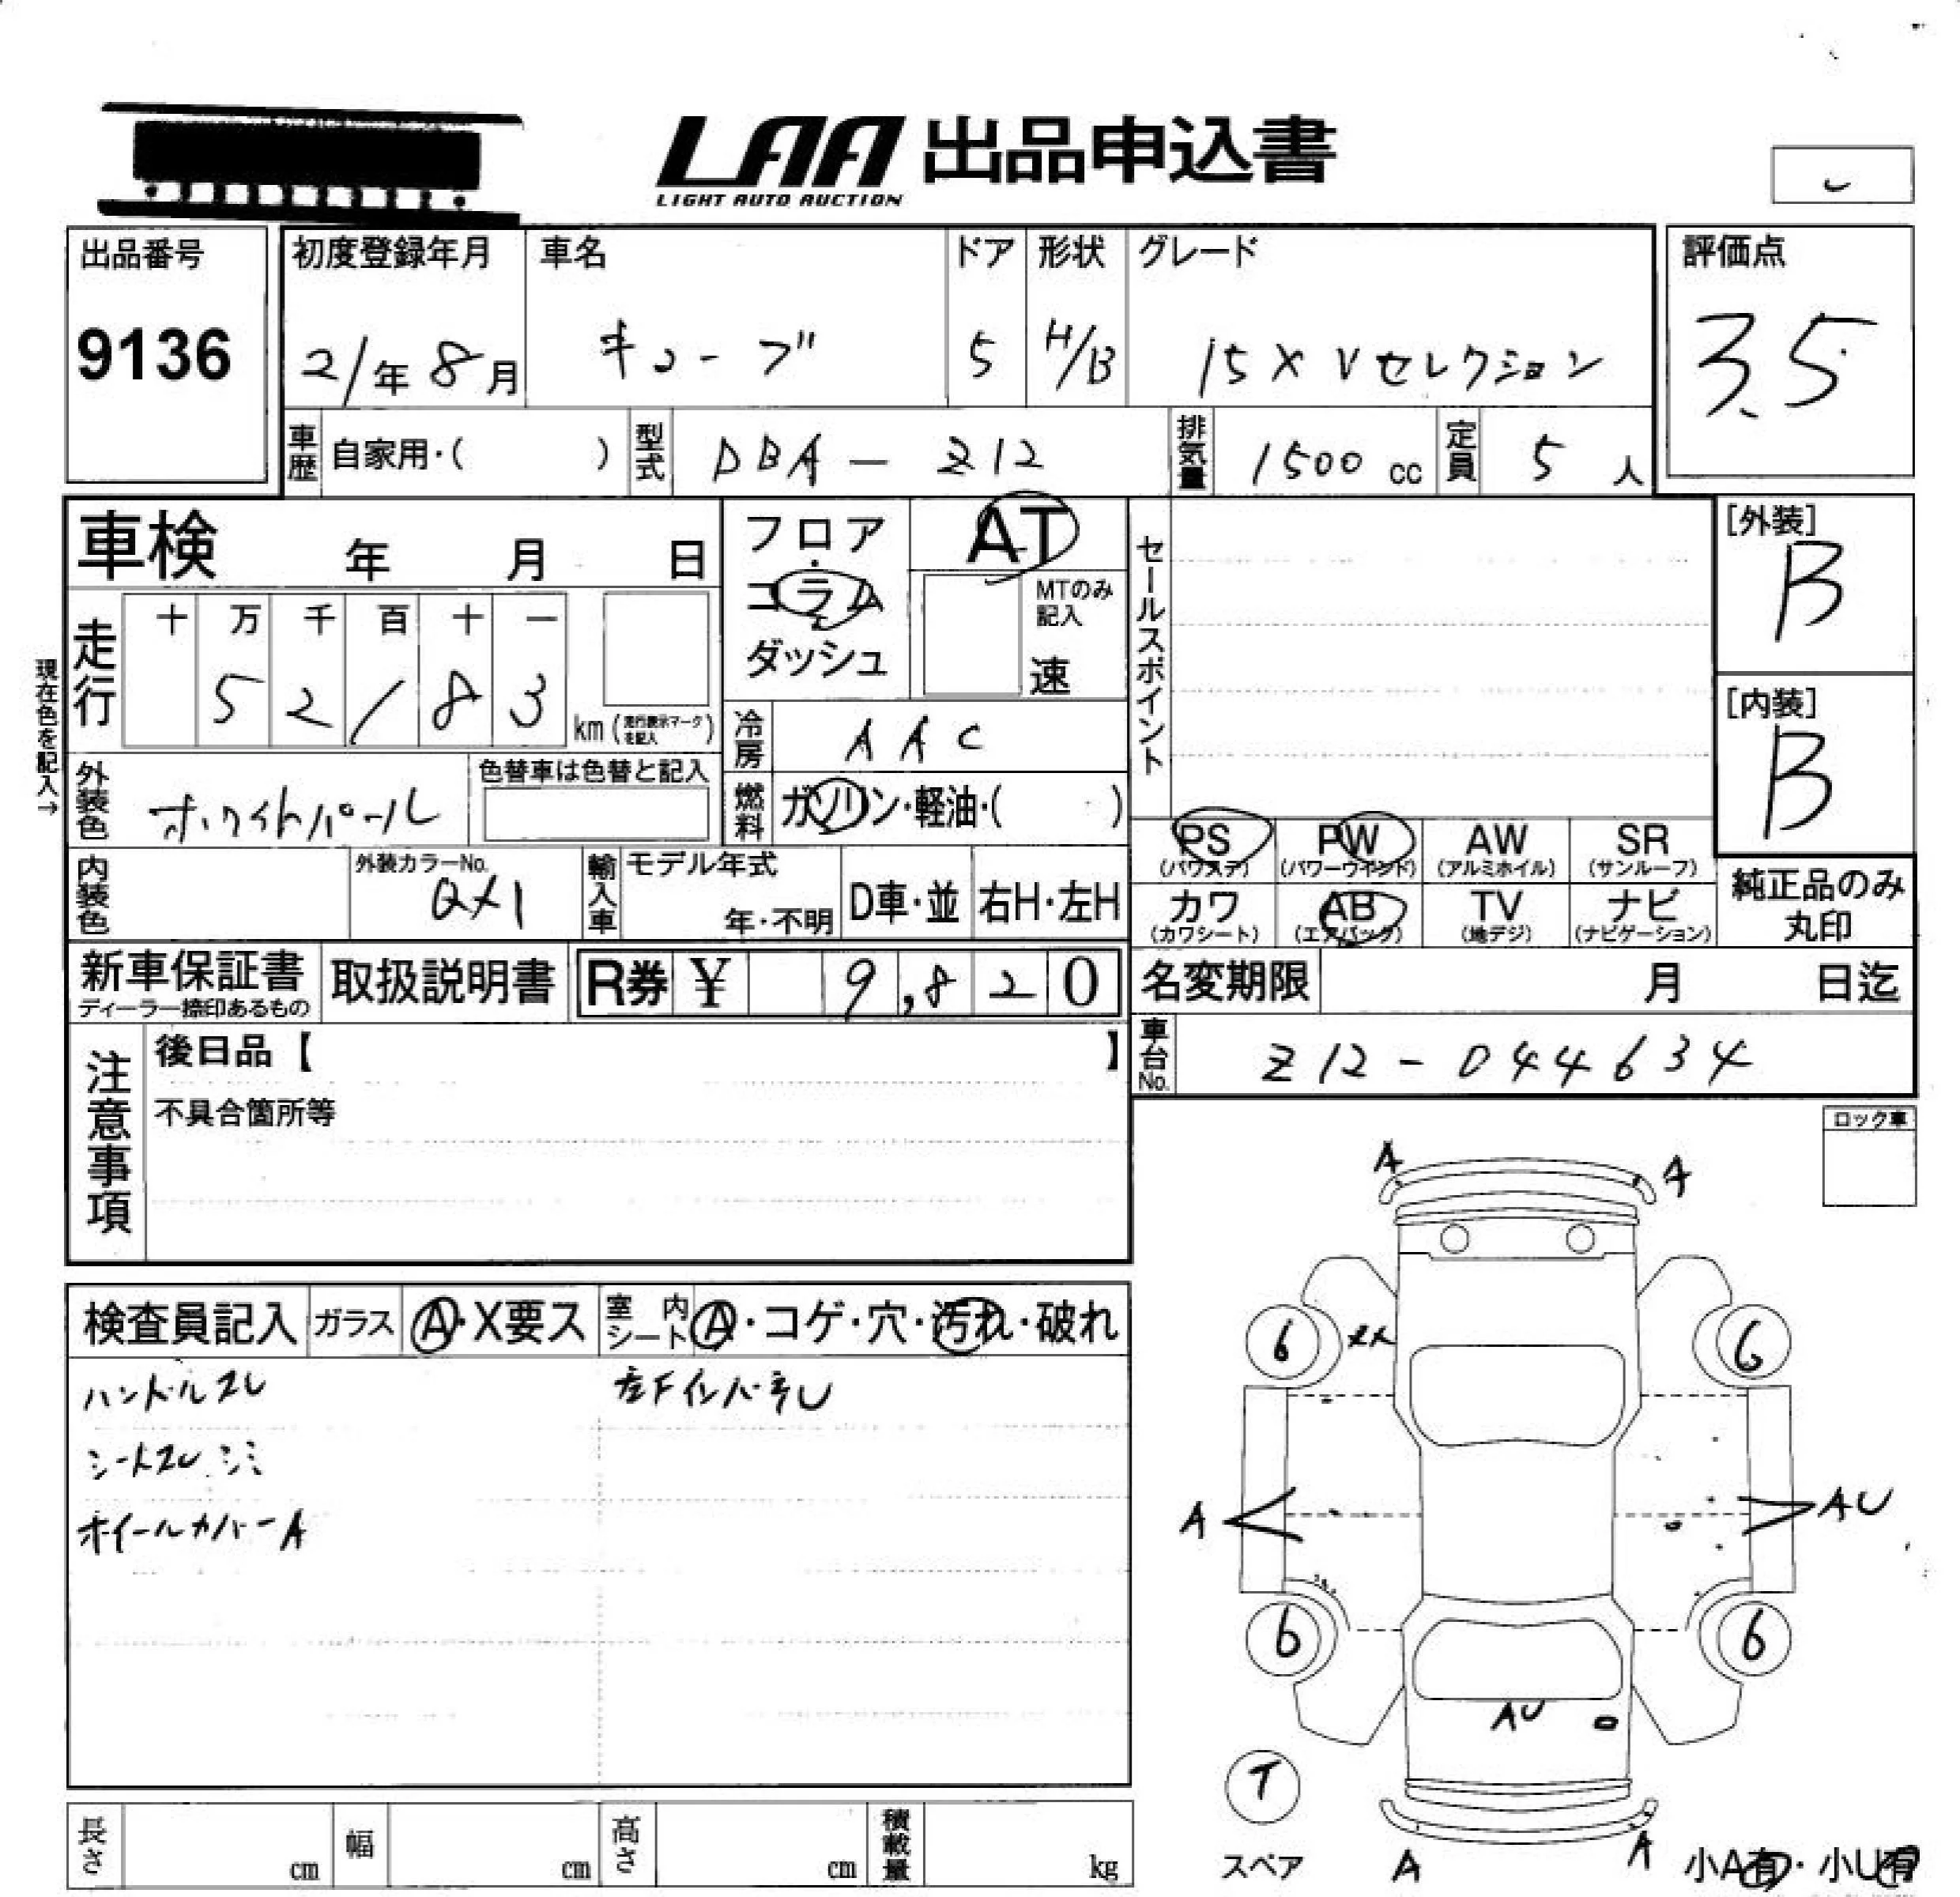 LAA 出品申込書
LIGHT AUTO AUCTION
出品番号
9136
初度登録年月
21年 8月
車名
キューブ
ドア
5
形状
H/B
グレード
15X Vセレクション
評価点
3.5
車歴 自家用・( )
型式 DBA-Z12
排気量 1500 cc
定員 5 人
車検 年 月 日
フロア
・
コラム
・
ダッシュ
AT
MTのみ
記入
速
セールスポイント
[外装]
B
[内装]
B
現在色を記入→
走行
十 万 千 百 十 一
5 2 1 8 3
km (走行表示マークを記入)
冷房 AAC
外装色 ホワイトパール
色替車は色替と記入
燃料 ガソリン・軽油・( )
PS
(パワステ)
PW
(パワーウインド)
AW
(アルミホイル)
SR
(サンルーフ)
内装色
外装カラーNo.
QX1
輸入車
モデル年式
年・不明
D車・並
右H・左H
カワ
(カワシート)
AB
(エアバッグ)
TV
(地デジ)
ナビ
(ナビゲーション)
純正品のみ
丸印
新車保証書
ディーラー捺印あるもの
取扱説明書
R券 ¥ 9,820
名変期限 月 日迄
注意事項
後日品【 】
不具合箇所等
車台No. Z12-044634
ロック車
検査員記入
ガラス A・X要ス
室内シート A・コゲ・穴・汚れ・破れ
ハンドルスレ
シートスレ シミ
ホイールカバーA
A
A
6
XX
6
A
AU
6
6
AU
T
スペア
A
A
小A有・小U有
長さ cm
幅 cm
高さ cm
積載量 kg